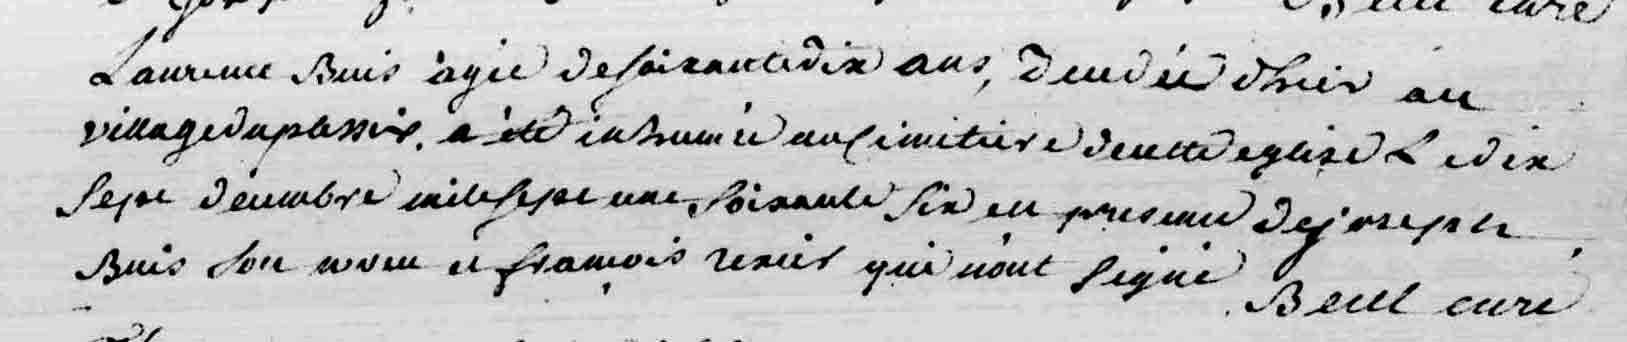 curé
Laurence Buis agée de soixante dix ans, decedée d'hier au
village duplessis, a été inhumée au cimitiere de cette eglise Le dix
sept decembre mil sept cens soixante six en presence de joseph
Buis son neveu et françois renier qui n'ont signé
curé